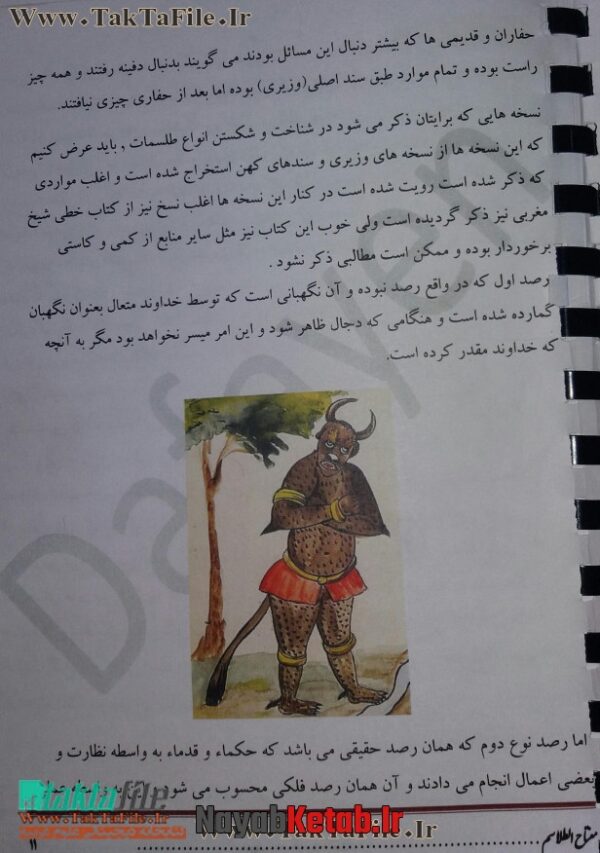 www.TakTaFile.Ir
حفاران و قدیمی ها که بیشتر دنبال این مسائل بودند می گویند بدنبال دفینه رفتند و همه چیز
راست بوده و تمام موارد طبق سند اصلی(وزیری) بوده اما بعد از حفاری چیزی نیافتند.
نسخه هایی که برایتان ذکر می شود در شناخت و شکستن انواع طلسمات , باید عرض کنیم
که این نسخه ها از نسخه های وزیری و سندهای کهن استخراج شده است و اغلب مواردی
که ذکر شده است رویت شده است در کنار این نسخه ها اغلب نسخ نیز از کتاب خطی شیخ
مغربی نیز ذکر گردیده است ولی خوب این کتاب نیز مثل سایر منابع از کمی و کاستی
برخوردار بوده و ممکن است مطالبی ذکر نشود .
رصد اول که در واقع رصد نبوده و آن نگهبانی است که توسط خداوند متعال بعنوان نگهبان
گمارده شده است و هنگامی که دجال ظاهر شود و این امر میسر نخواهد بود مگر به آنچه
که خداوند مقدر کرده است.
Dafayen
اما رصد نوع دوم که همان رصد حقیقی می باشد که حکماء و قدماء به واسطه نظارت و
بعضی اعمال انجام می دادند و آن همان رصد فلکی محسوب می شود
taktafile
NayabKetab.Ir
www.TakTaFile.Ir
مفتاح الطلاسم
۱۱